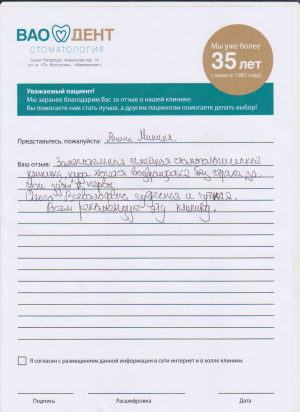 ВАО ДЕНТ
СТОМАТОЛОГИЯ
Санкт-Петербург, Казанский пер. 14
Мы уже более
35 лет
с вами (с 1983 года)
Уважаемый пациент!
Мы заранее благодарим Вас за отзыв о нашей клинике.
Вы помогаете нам стать лучше, а другим пациентам помогаете делать выбор!
Представьтесь, пожалуйста:
Ваш отзыв: Замечательная семейная стоматологическая
клиника, куда хочется возвращаться без страха за
свои зубы и нервы.
Ольга Всеволодовна чудесная и чуткая.
Всем рекомендую эту клинику.
Я согласен с размещением данной информации в сети интернет и в холле клиники.
Подпись
Расшифровка
Дата